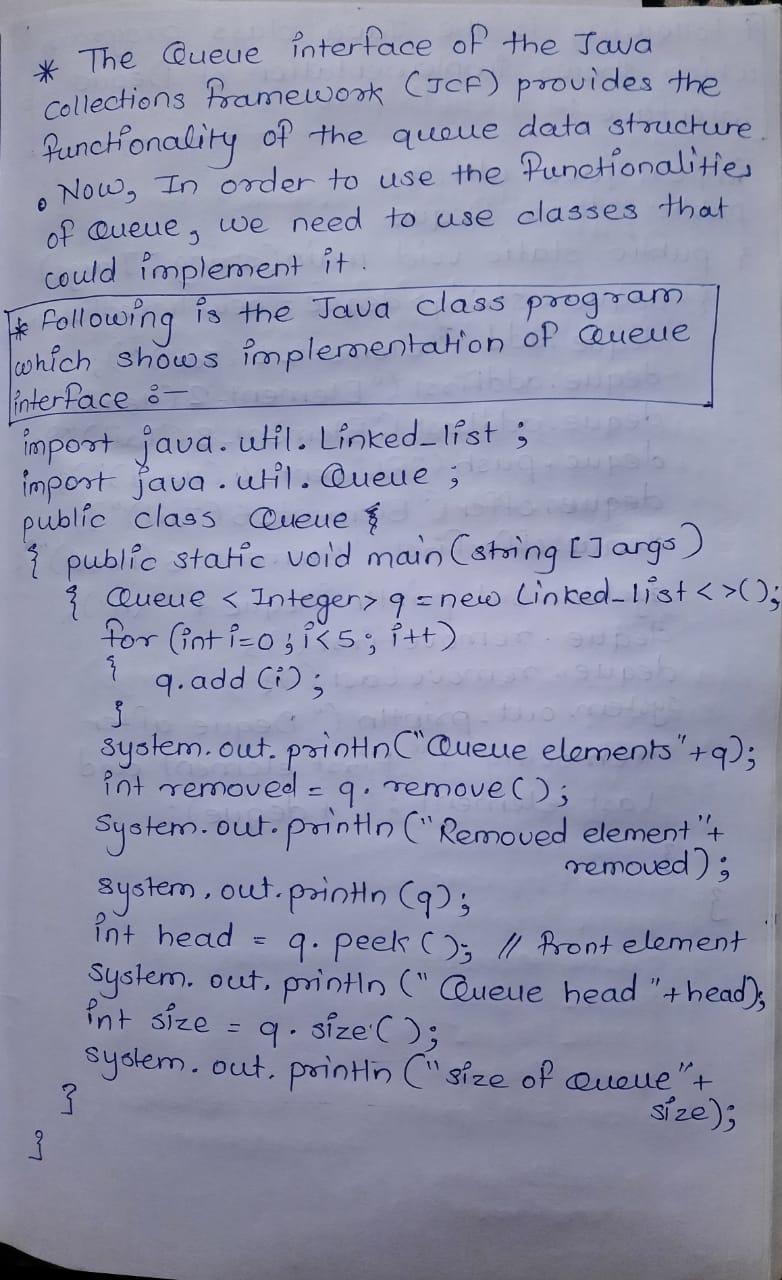 * The Queue interface of the Java
collections framework (JCF) provides the
functionality of the queue data structure
. Now, In order to use the functionalities
of Queue, we need to use classes that
could implement it.
* Following is the Java class program
which shows implementation of Queue
interface :-
import java.util.Linked_list;
import java.util.Queue;
public class Queue {
{ public static void main(string []args)
{ Queue <Integer> q = new Linked_list<>();
for (int i=0; i<5; i++)
{ q.add (i);
}
system.out.println("Queue elements"+q);
int removed = q.remove();
System.out.println("Removed element"+
removed);
system.out.println(q);
int head = q.peek(); // front element
System.out.println("Queue head"+head);
int size = q.size();
system.out.println("size of queue"+
size);
}
}